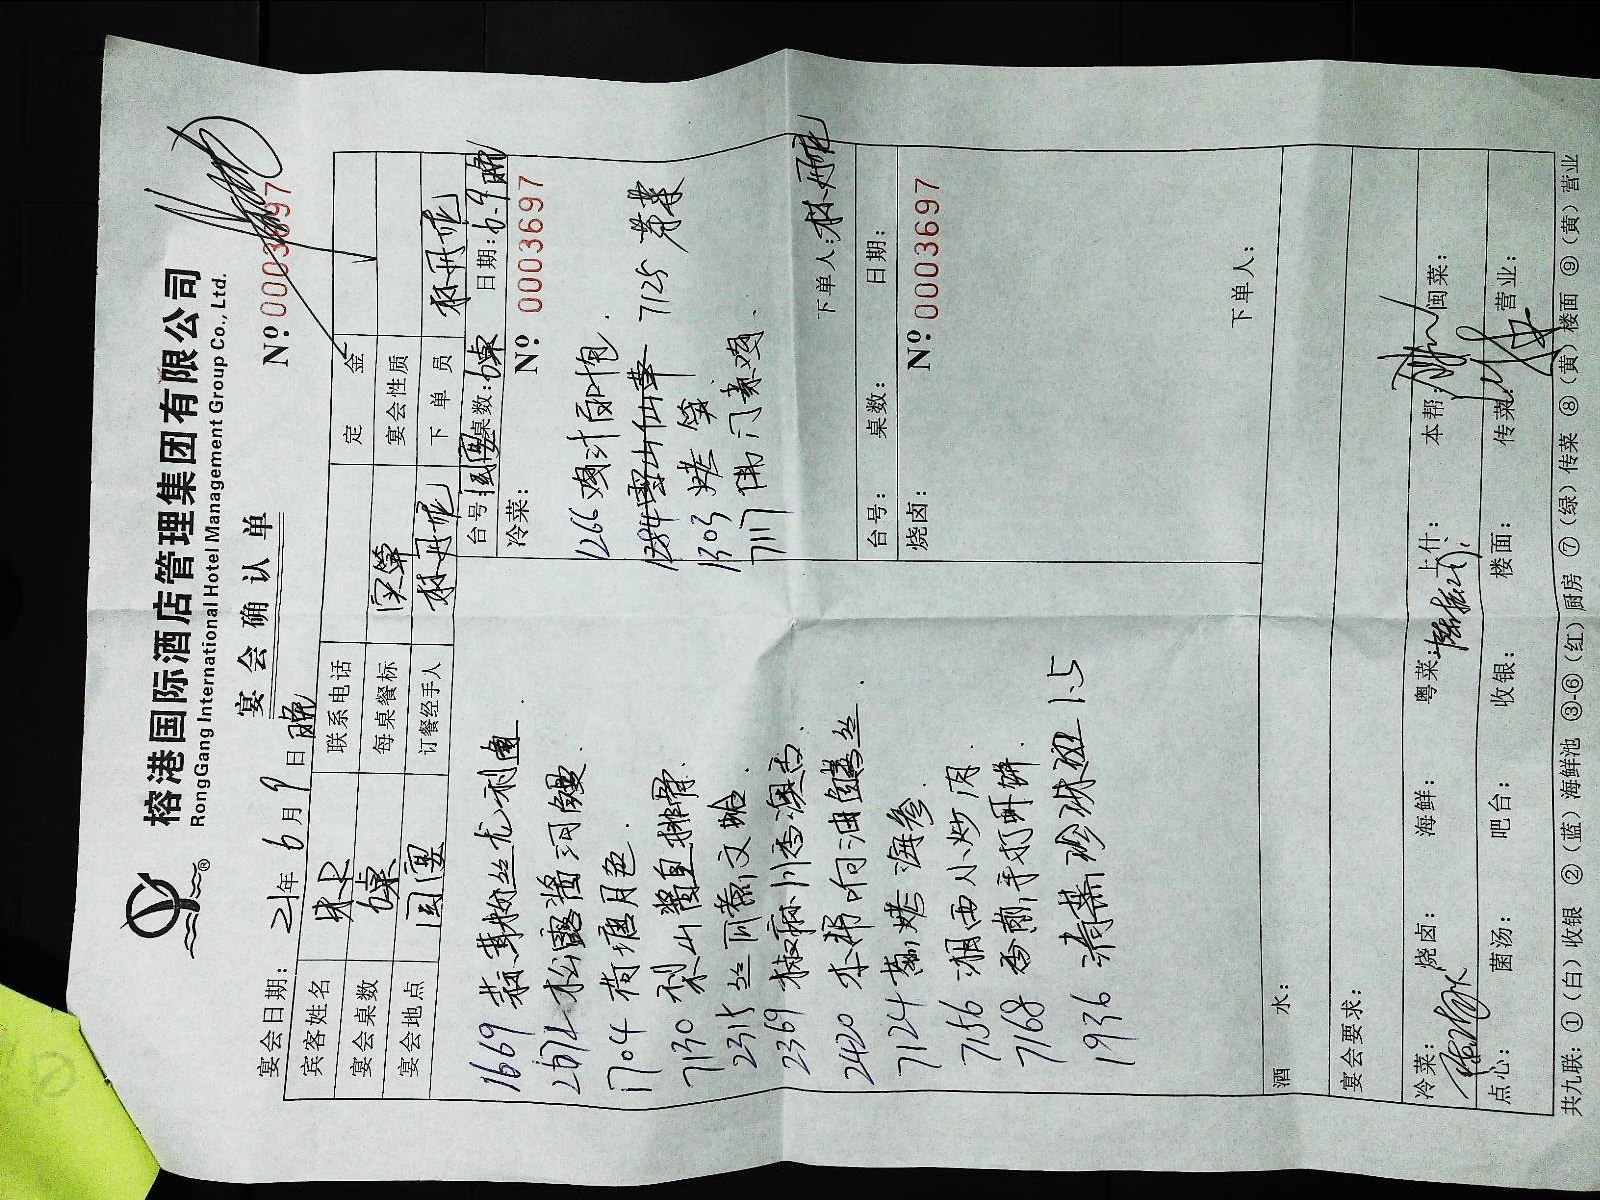 榕港国际酒店管理集团有限公司
RongGang International Hotel Management Group Co., Ltd.
®
宴会确认单
Nº: 0003697
宴会日期: 21年6月9日晚
宾客姓名 联系电话 定金
宴会桌数 6桌 每桌餐标 宴会性质
宴会地点 国宴 订餐经手人 林丹妮 下单员 林丹妮
台号: 国宴 桌数: 6桌 日期: 6.9晚
冷菜: Nº: 0003697
1266 鸡汁面包.
1284
1303 烤笋
7117 佛门素鸡.
7125 芥菜
下单人: 林丹妮
1669 蒜茸粉丝尤利圆.
2672 松露酱河鳗.
1704 荷塘月色.
7130 梨山酱皇排骨.
2315 丝网煮文蛤
2369 椒麻川香澳杏.
2420 本邦响油鳝丝.
7124 葱烤海参.
7156 湘西小炒肉.
7168 香煎手打虾饼.
1936 清蒸珍珠斑 1.5
台号: 桌数: 日期:
烧卤: Nº: 0003697
下单人:
酒水:
宴会要求:
冷菜: 烧卤: 海鲜: 粤菜: 上什: 本帮: 闽菜:
点心: 菌汤: 吧台: 收银: 楼面: 传菜: 营业:
共九联: ①(白)收银 ②(蓝)海鲜池 ③-⑥(红)厨房 ⑦(绿)传菜 ⑧(黄)楼面 ⑨(黄)营业